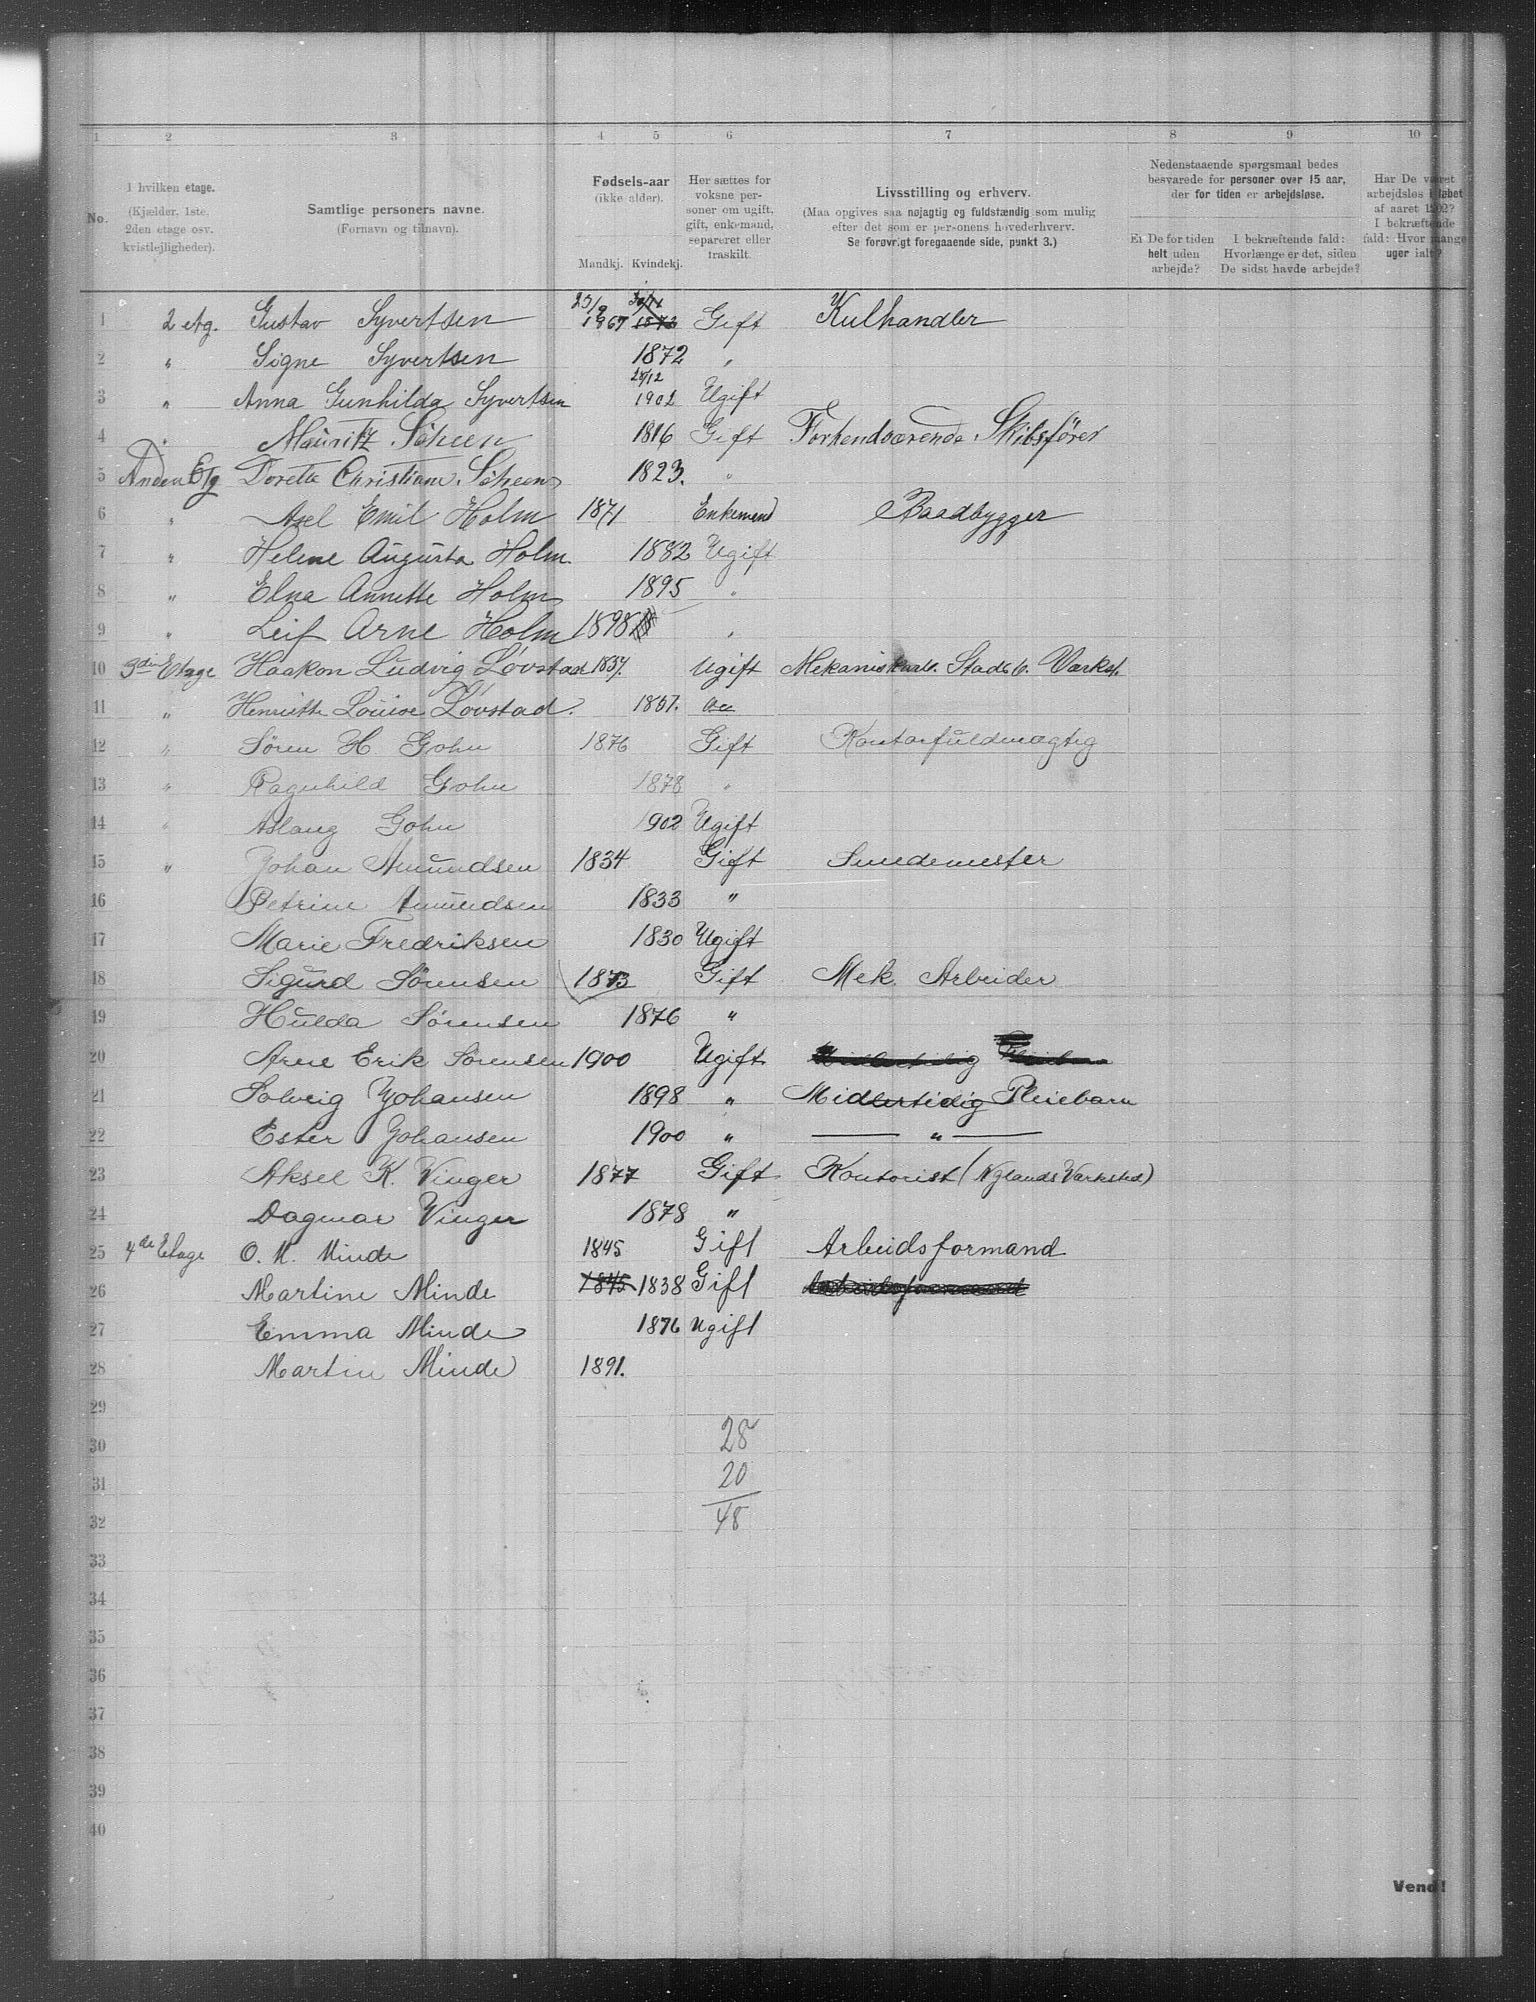 1 2 3 4 5 6 7 8 9 10
No.
I hvilken etage.
(Kjælder, 1ste,
2den etage osv.
kvistlejligheder).
Samtlige personers navne.
(Fornavn og tilnavn).
Fødsels-aar
(ikke alder).
Mandkj. Kvindekj.
Her sættes for
voksne per-
soner om ugift,
gift, enkemand,
separeret eller
fraskilt.
Livsstilling og erhverv.
(Maa opgives saa nøjagtig og fuldstændig som mulig
efter det som er personens hovederhverv.
Se forøvrigt foregaaende side, punkt 3.)
Nedenstaaende spørgsmaal bedes
besvarede for personer over 15 aar,
der for tiden er arbejdsløse.
Er De for tiden
helt uden
arbejde?
I bekræftende fald:
Hvorlænge er det, siden
De sidst havde arbejde?
Har De været
arbejdsløs i løbet
af aaret 1902?
I bekræftende
fald: Hvor mange
uger ialt?
1 2 etg. Gustav Syvertsen 25/9 1867 Gift Kulhandler
2 " Signe Syvertsen 1872 "
3 " Anna Gunhilda Syvertsen 28/12 1902 Ugift
4 " Mauritz Scheen 1816 Gift Forhendværende Skibsfører
5 Anden Etg Dorette Christiane Scheen 1823. "
6 " Axel Emil Holm 1871 Enkemend Baadbygger
7 " Helene Augusta Holm 1882 Ugift
8 " Elna Annette Holm 1895 "
9 " Leif Arne Holm 1898 "
10 3die Etage Haakon Ludvig Løvstad 1837. Ugift Mekaniskarb. Stads b. Værkst.
11 " Henriette Louise Løvstad. 1857.
12 " Søren H. Gohn 1876 Gift Kontorfuldmægtig
13 " Ragnhild Gohn 1878 "
14 " Aslaug Gohn 1902 Ugift
15 " Johan Amundsen 1834 Gift Smedemester
16 Petrine Amundsen 1833 "
17 Marie Fredriksen 1830 Ugift
18 Sigurd Sørensen 1873 Gift Mek. Arbeider
19 Hulda Sørensen 1876 "
20 Arne Erik Sørensen 1900 Ugift Midlertidig Pleiebarn
21 Solveig Johansen 1898 " Midlertidig Pleiebarn
22 Ester Johansen 1900 " — " —
23 Aksel K. Vinger 1877 Gift Kontorist (Nylands Værksted)
24 Dagmar Vinger 1878 "
25 4de Etage O. M. Minde 1845 Gift Arbeidsformand
26 Martine Minde 1845 1838 Gift Arbeidsformand
27 Emma Minde 1876 Ugift
28 Martin Minde 1891.
29
30 28
31 20
32 48
33
34
35
36
37
38
39
40
Vend!